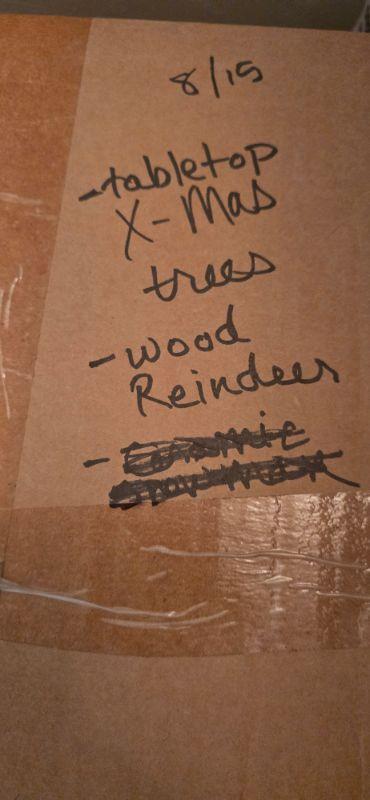 8/15
-tabletop
X-Mas
trees
-wood
Reindeer
- Ceramic